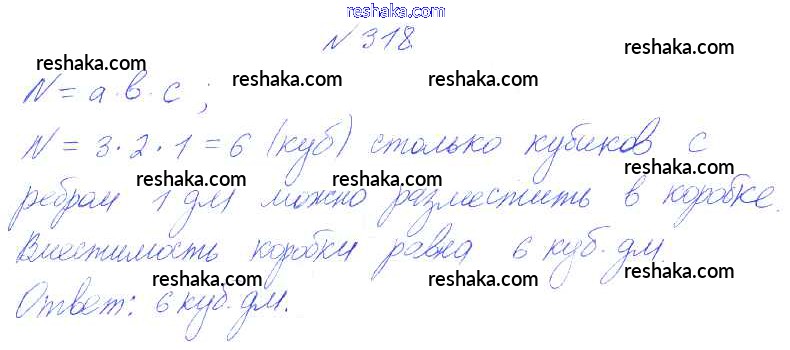 reshaka.com
N 318
reshaka.com reshaka.com reshaka.com reshaka.com
N = a · в · c ;
N = 3 · 2 · 1 = 6 (куб) столько кубиков с
reshaka.com reshaka.com reshaka.com
ребром 1 дм можно разместить в коробке.
Вместимость коробки равна 6 куб. дм
reshaka.com reshaka.com reshaka.com
Ответ: 6 куб. дм.